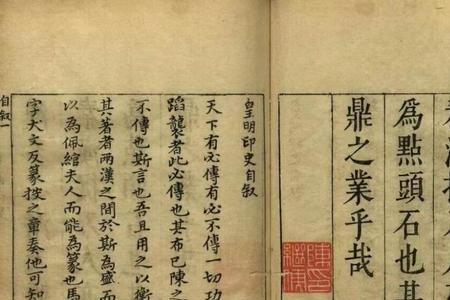 為點頭石也其
鼎之業乎哉
皇明印史自叙
天下有必傳有必不傳一切功
蹈襲者此必傳也其布已陳之
不傳也斯言也吾且用之以衡
著者兩漢之間於斯為盛而
以為佩綰夫人而能為篆也馬
字犬文反篆按之章奏他可知
自叙一